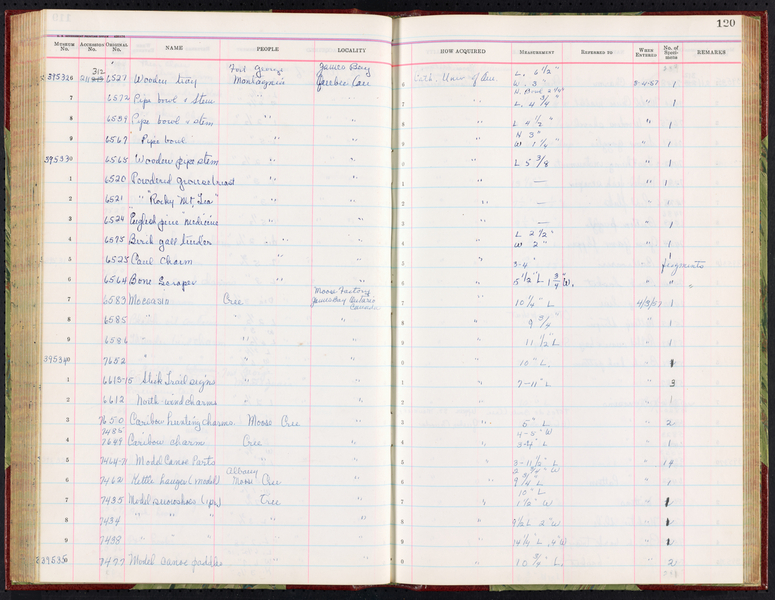 120
MUSEUM No. ACCESSION No. ORIGINAL No. NAME PEOPLE LOCALITY HOW ACQUIRED MEASUREMENT REFERRED TO WHEN ENTERED No. of Specimens REMARKS
395326 312 6527 Wooden tray Fort George Montagnais James Bay Quebec Can Cath. Univ. of Am. L. 6 1/2" W. 3" 3-4-57 1
7 6572 Pipe bowl & stem " " " L. 4 3/4" " 1
8 6539 Pipe bowl & stem " " " L 4 1/2" " 1
9 6567 Pipe bowl " " " H 3" W 1 1/4" " 1
395330 6565 Wooden pipe stem " " " L 5 3/8 " 1
1 6520 Powdered grouse breast " " " — " 1
2 6521 " "Rocky Mt. Tea" " " " — " 1
3 6524 "English pine" medicine " " " — " 1
4 6575 Birch gall tinder " " " L 2 1/2" W 2" " 1
5 6525 Caul charm " " " 3-4" " fragments
6 6564 Bone scraper " " " 5 1/2" L 1 3/4" W. " "
7 6583 Moccasin Cree Moose Factory James Bay Ontario Canada " 10 1/4" L 4/3/57 1
8 6585 " " " " 9 3/4" " 1
9 6586 " " " " 11 1/2" L " 1
395340 7652 " " " " 10" L. " 1
1 6613-15 Stick Trail signs " " " 7-11" L " 3
2 6612 North wind charms " " " " 1
3 7650 7485 Caribou hunting charms Moose Cree " " 5" L 4-5" W " 2
4 7649 Caribou charm Cree " " L " 1
5 7464-71 Model Canoe Parts " " " 3-11 1/2" L " 14
6 7462 Kettle hanger (model) Albany Moose Cree " " 9 1/4" L " 1
7 7435 Model snowshoes (1 pr) Cree " " 10" L. 1 1/2" W " 1
8 7434 " " " " " " 9 1/2 L 2" W " 1
9 7438 " " " " " " L, W " 1
395350 7477 Model canoe paddles " " " 10 3/4" L. " 2